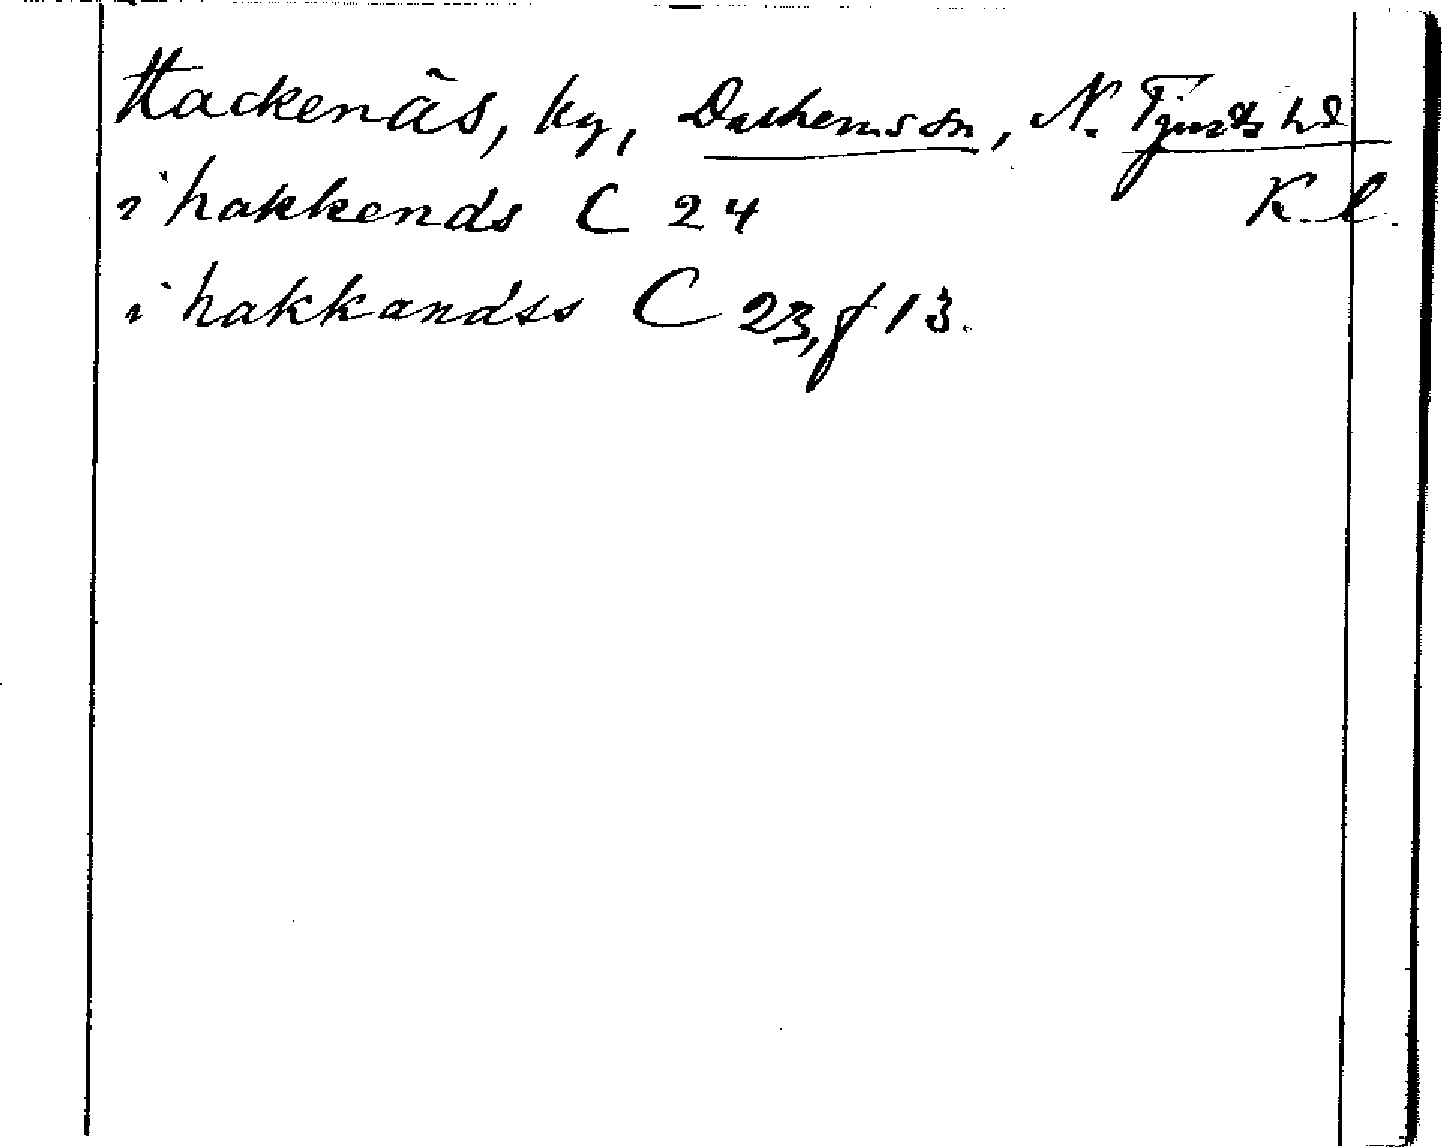 Hackenäs, by, Dalhems sn, N. Tjusts hd
i hakkends C 24 K. l.
i hakkandss C 23, f 13.